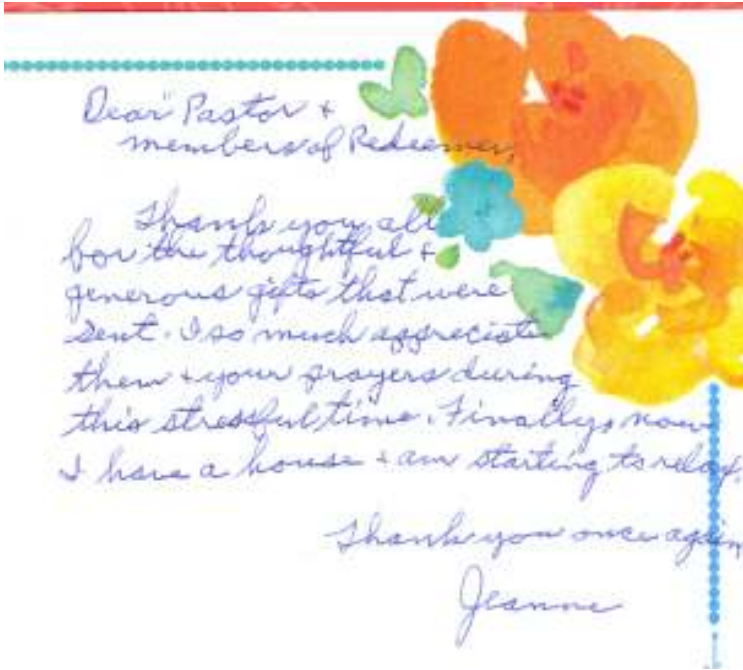 Dear Pastor +
members of Redeemer,
Thank you all
for the thoughtful +
generous gifts that were
sent. I so much appreciate
them + your prayers during
this stressful time. Finally, now
I have a house + am starting to relax.
Thank you once again,
Jeanne